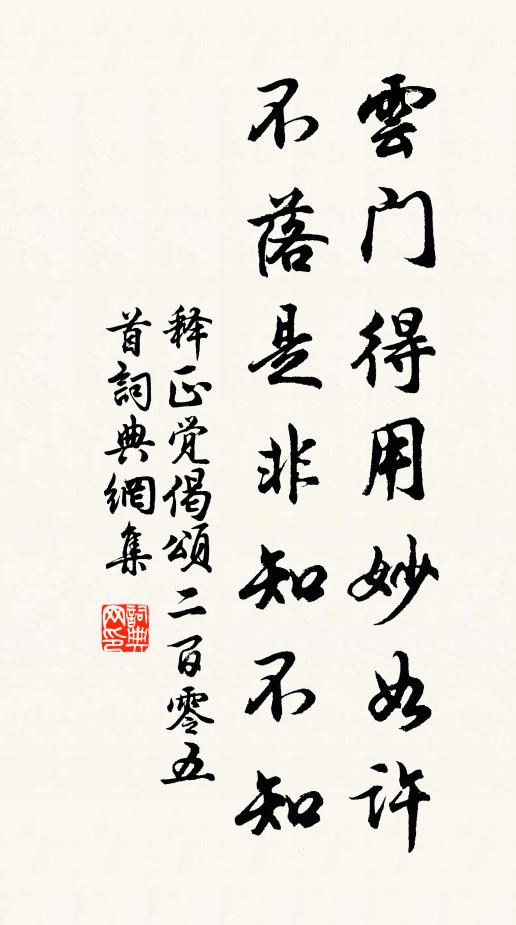 雲门得用妙如许
不落是非知不知
释正觉偈頌二百零五
首詞典網集
詞典网印